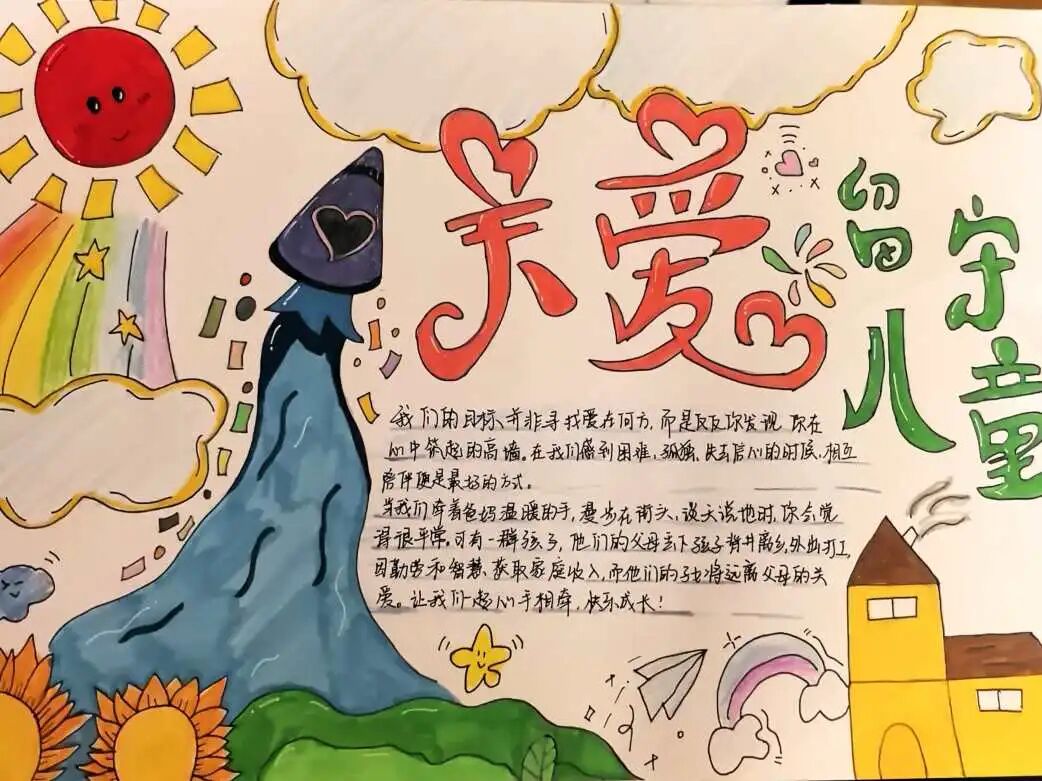 关爱
留守
儿童
我们的目标,并非寻找爱在何方,而是反反你发现 你在
心中筑起的高墙。在我们感到困难、孤独、失去信心的时候,相互
陪伴便是最好的方式。
当我们牵着爸妈温暖的手,漫步在街头,谈天说地时,你会觉
得很平常。可有一群孩子,他们的父母丢下孩子背井离乡,外出打工,
因勤劳和智慧、获取家庭收入,而他们的子女将远离父母的关
爱。让我们一起心手相牵,快乐成长!